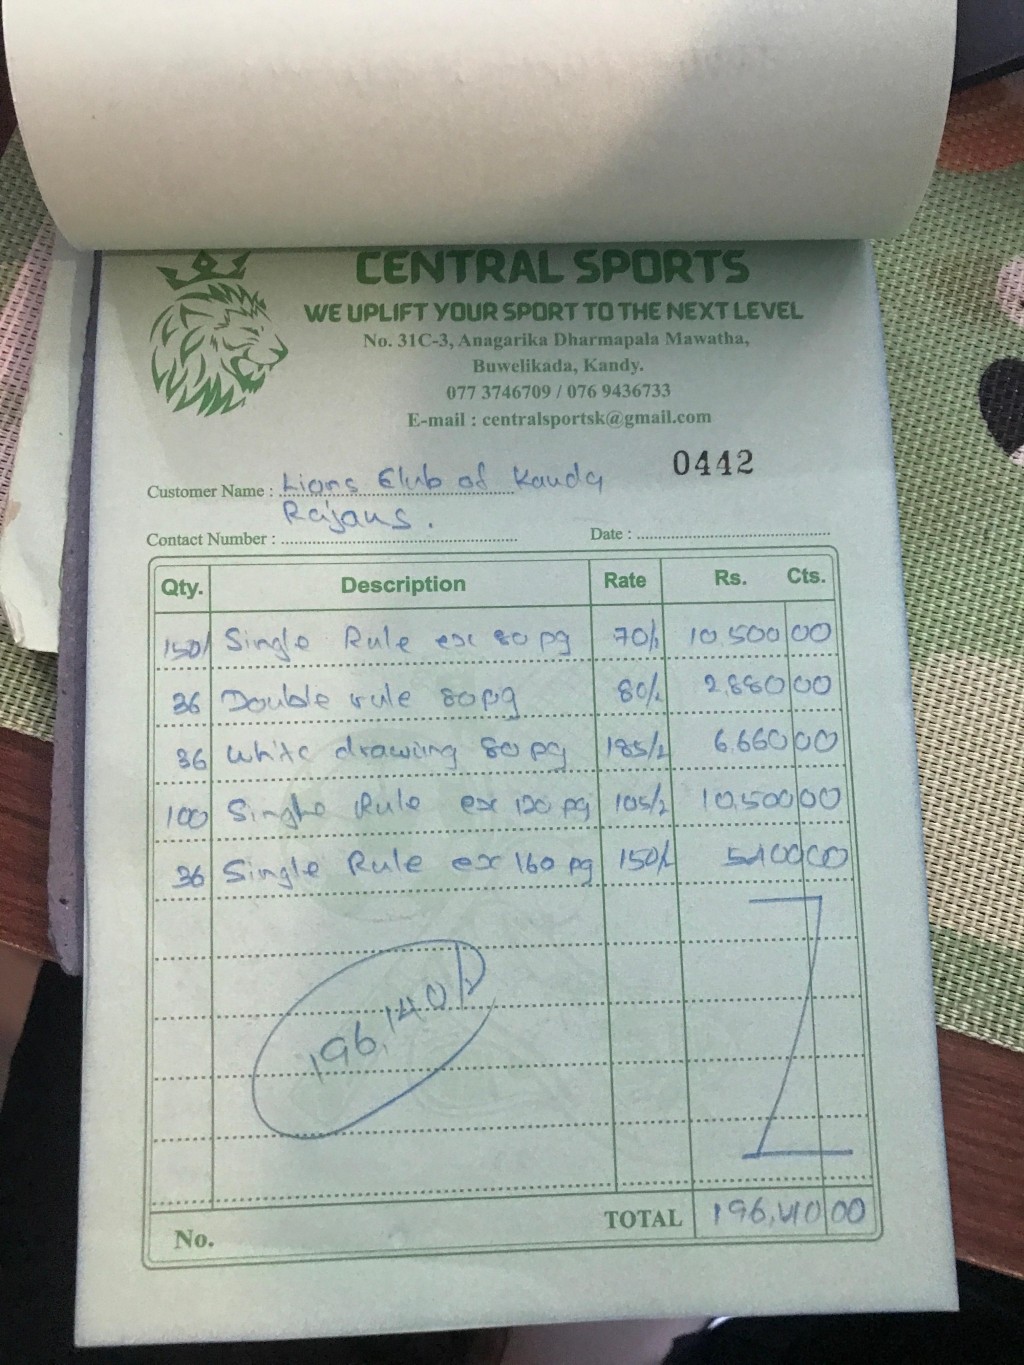 CENTRAL SPORTS
WE UPLIFT YOUR SPORT TO THE NEXT LEVEL
No. 31C-3, Anagarika Dharmapala Mawatha,
Buwelikada, Kandy.
077 3746709 / 076 9436733
E-mail : centralsportsk@gmail.com
0442
Customer Name : Lions Club of Kandy
Rajans.
Contact Number :
Date :
Qty. Description Rate Rs. Cts.
150/ Single Rule ex 80 pg 70/- 10,500 00
36 Double rule 80pg 80/- 2,880 00
36 White drawing 80 pg 185/- 6,660 00
100 Single Rule ex 120 pg 105/- 10,500 00
36 Single Rule ex 160 pg 150/- 5400 00
196,140/-
TOTAL 196,140 00
No.